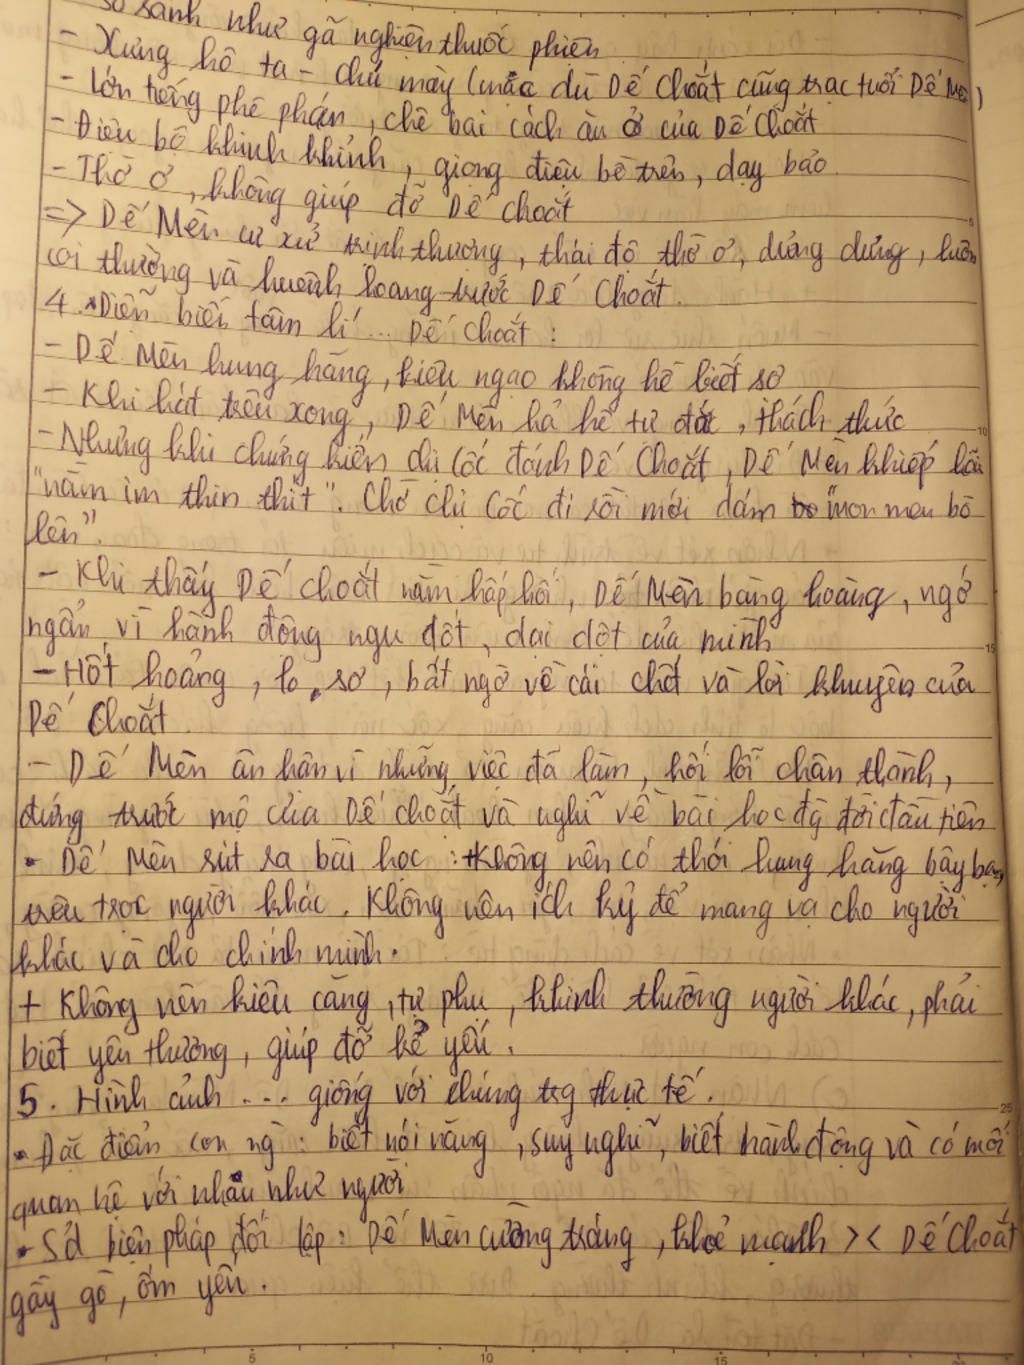 so sánh như gã nghiện thuốc phiện
- Xưng hô ta - chú mày (mặc dù Dế Choắt cũng trạc tuổi Dế Mèn)
- Lớn tiếng phê phán, chê bai cách ăn ở của Dế Choắt
- Điệu bộ khinh khỉnh, giọng điệu bề trên, dạy bảo
- Thờ ơ, không giúp đỡ Dế Choắt
=> Dế Mèn cư xử trịnh thượng, thái độ thờ ơ, dửng dưng, luôn
coi thường và huênh hoang trước Dế Choắt.
4. *Diễn biến tâm lí ... Dế Choắt :
- Dế Mèn hung hăng, kiêu ngạo không hề biết sợ
- Khi hát trêu xong, Dế Mèn hả hê tự đắc, thách thức
- Nhưng khi chứng kiến chị Cốc đánh Dế Choắt, Dế Mèn khiếp hãi
"nằm im thin thít". Chờ chị Cốc đi rồi mới dám "mon men bò
lên".
- Khi thấy Dế Choắt nằm hấp hối, Dế Mèn bàng hoàng, ngớ
ngẩn vì hành động ngu dốt, dại dột của mình
- Hốt hoảng, lo sợ, bất ngờ về cái chết và lời khuyên của
Dế Choắt
- Dế Mèn ân hận vì những việc đã làm, hối lỗi chân thành,
đứng trước mộ của Dế Choắt và nghĩ về bài học đg đời đầu tiên
* Dế Mèn rút ra bài học : +Không nên có thói hung hăng bậy bạ,
trêu trọc người khác. Không nên ích kỷ để mang vạ cho người
khác và cho chính mình.
+ Không nên kiêu căng, tự phụ, khinh thường người khác, phải
biết yêu thương, giúp đỡ kẻ yếu.
5. Hình ảnh ... giống với chúng trg thực tế.
* Đặc điểm con ng : biết nói năng, suy nghĩ, biết hành động và có mối
quan hệ với nhau như người
* Sd biện pháp đối lập : Dế Mèn cường tráng, khoẻ mạnh >< Dế Choắt
gầy gò, ốm yếu.